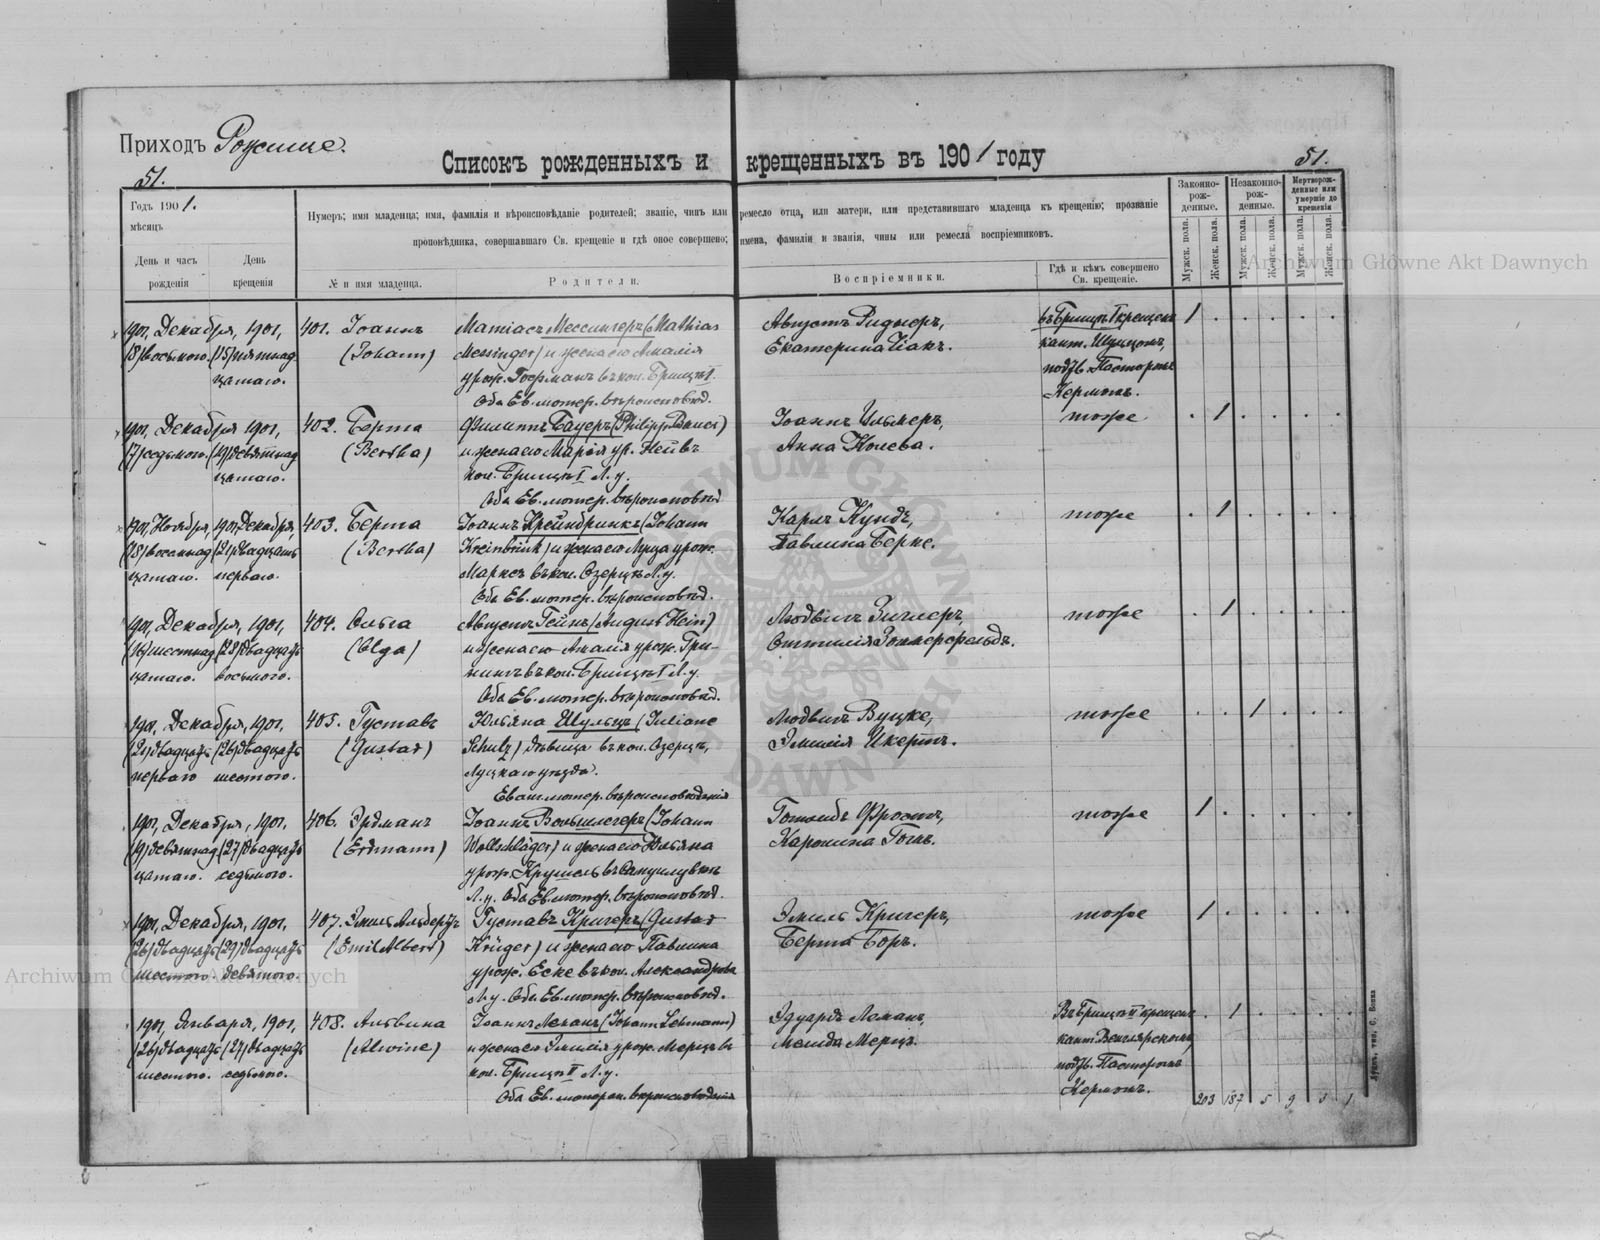 Приходъ Рожище.
Списокъ рожденныхъ и крещенныхъ въ 1901 году
51.
51.
Годъ 1901.
мѣсяцъ
День и часъ рожденія
День крещенія
Нумеръ; имя младенца; имя, фамилія и вѣроисповѣданіе родителей; званіе, чинъ или ремесло отца, или матери, или представившаго младенца къ крещенію; прозваніе
проповѣдника, совершавшаго Св. крещеніе и гдѣ оное совершено; имена, фамиліи и званія, чины или ремесла воспріемниковъ.
№ и имя младенца.
Родители.
Воспріемники.
Гдѣ и кѣмъ совершено
Св. крещеніе.
Законно-
рож-
денные.
Незаконно-
рож-
денные.
Мертворож-
денные или
умершіе до
крещенія
Мужск. пола.
Женск. пола.
Мужск. пола.
Женск. пола.
Мужск. пола.
Женск. пола.
1901, Декабря, 1901, 401. Іоаннъ Матіасъ Мессингеръ (Mathias Августъ Ридигеръ, въ Брищъ I крещенъ 1
(8) восьмого. (15) пятнад (Johann) Messinger) и жена его Амалія Екатерина кант. Шульцомъ,
цатаго. урож. Госрманъ въ кол. Брищъ I. подтв. Пасторомъ
Оба Ев. лютер. вѣроисповѣд. Кермомъ.
1901, Декабря 1901, 402. Берта Филиппъ Бауеръ (Philipp Bauer) Іоаннъ тоже 1
(7) седьмого. (19) девятнад (Bertha) и жена его Марія ур. Нейвъ Анна Колева.
цатаго. кол. Брищъ I Л. у.
Оба Ев. лютер. вѣроисповѣд
1901, Ноября, 1901 Декабря, 403. Берта Іоаннъ Крейнбринкъ (Johann Карлъ Кундъ, тоже 1
(18) восемнад (21) двадцать (Bertha) Kreinbrink) и жена его Луиза урож. Павлина Берке.
цатаго. перваго. Марксъ въ кол. Озерцъ Л. у.
Оба Ев. лютер. вѣроисповѣд.
1901, Декабря, 1901, 404. Ольга Августъ Гейнъ (August Hein) Людвигъ Зиглеръ, тоже 1
(16) шестнад (28) двадцать (Olga) и жена его Амалія урож. Гри- Оттилія Зоммерфельдъ.
цатаго. восьмого. нингъ въ кол. Брищъ I Л. у.
Оба Ев. лютер. вѣроисповѣд.
1901, Декабря, 1901, 405. Густавъ Юльяна Шульцъ (Juliane Людвигъ Вуцке, тоже 1
(21) двадцать (26) двадцать (Gustav) Schulz) дѣвица въ кол. Озерцъ, Эмилія Икертъ.
перваго шестого. Луцкаго уѣзда.
Еванг. лютер. вѣроисповѣданія
1901, Декабря, 1901. 406. Эрдманъ Іоаннъ Вольшлегеръ (Johann Готлибъ Фростъ, тоже 1
(19) девятнад (27) двадцать (Erdmann) Wollschläger) и жена его Юльяна Каролина Гогъ.
цатаго. седьмого. урож. Крушель въ
Л. у. Оба Ев. лютер. вѣроисповѣд.
1901, Декабря, 1901, 407. Эмиль Альбертъ Густавъ Кригеръ (Gustav Эмиль Кригеръ, тоже 1
(26) двадцать (29) двадцать (Emil Albert) Krüger) и жена его Павлина Берта Боръ.
шестого. девятого. урож. Еске въ кол. Александровка
Л. у. Оба Ев. лютер. вѣроисповѣд.
1901, Января, 1901, 408. Альвина Іоаннъ Леманъ (Johann Lehmann) Эдуардъ Леманъ, Въ Брищъ II крещена 1
(26) двадцать (27) двадцать (Alwine) и жена его Эмилія урож. Мерцъ въ Мелида Мерцъ. кант. Венслярскимъ,
шестого. седьмого. кол. Брищъ II Л. у. подтв. Пасторомъ
Оба Ев. лютеран. вѣроисповѣданія Кермомъ.
203 187 5 9 3 1
Archiwum Główne Akt Dawnych
Archiwum Główne Akt Dawnych